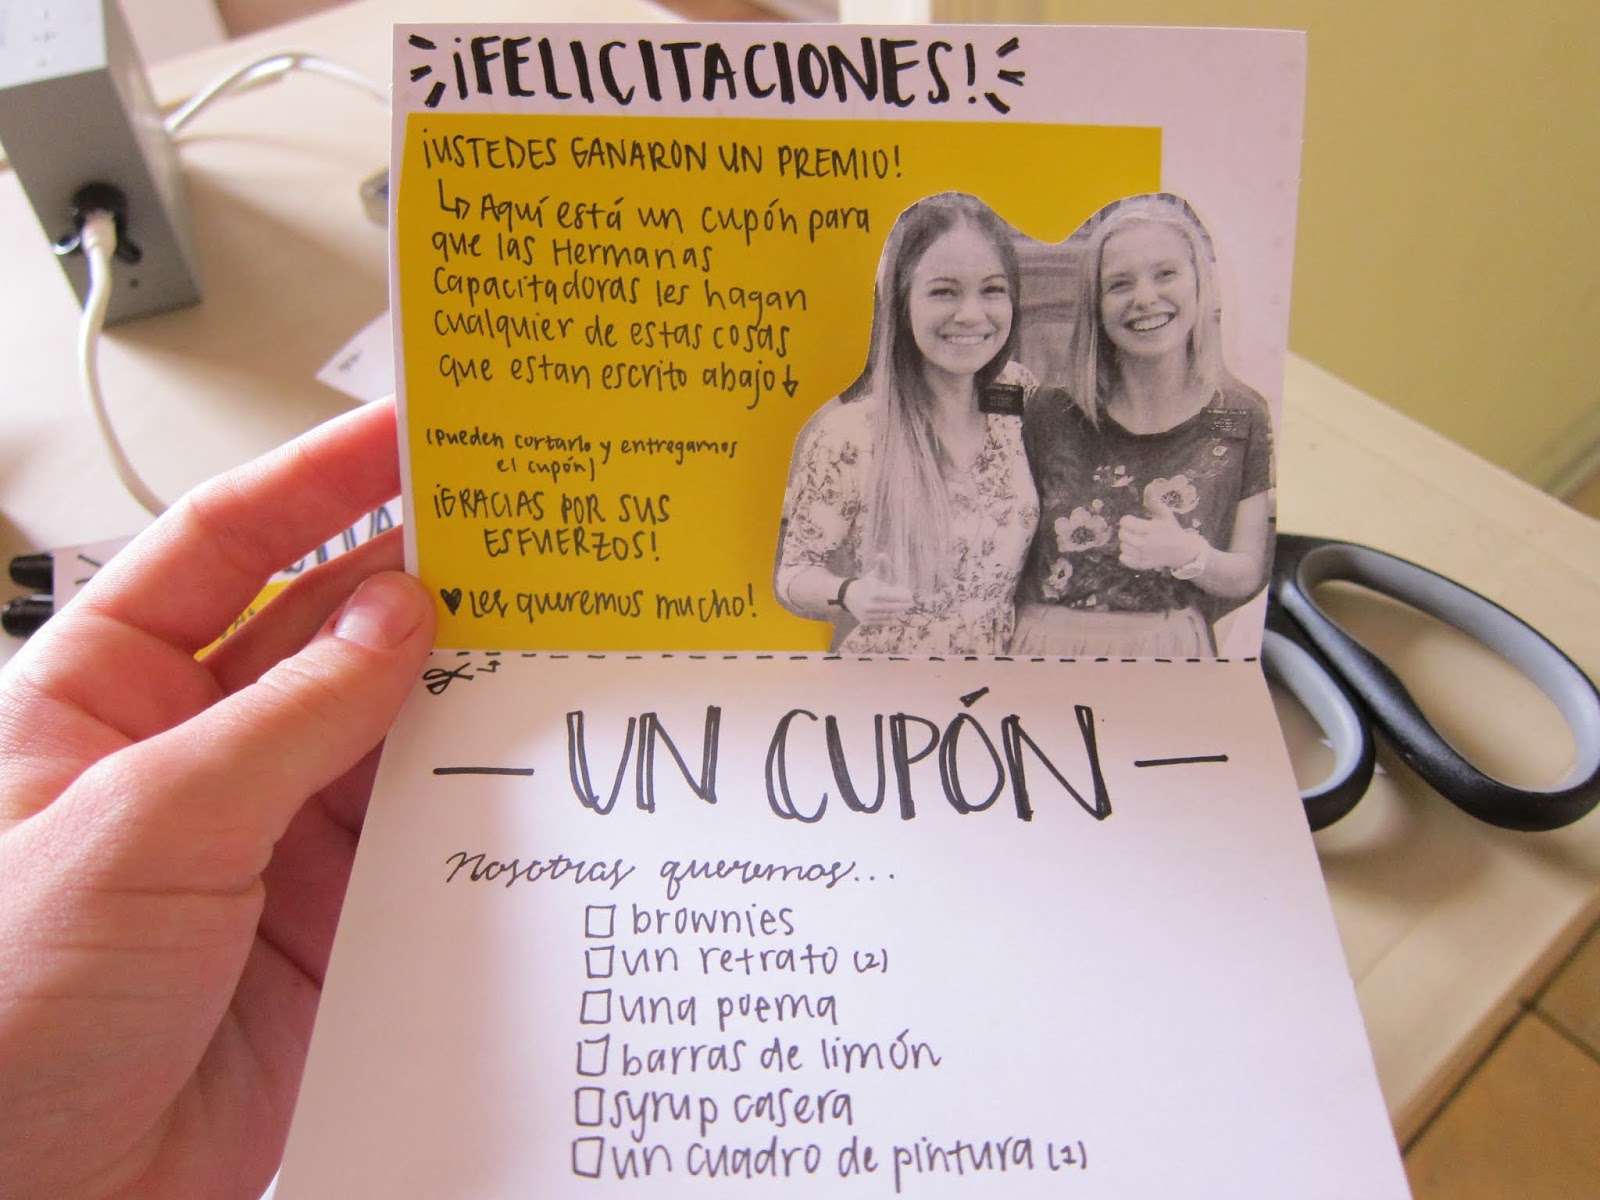 ¡FELICITACIONES!
¡USTEDES GANARON UN PREMIO!
↳ Aquí está un cupón para
que las Hermanas
Capacitadoras les hagan
cualquier de estas cosas
que estan escrito abajo↓
(pueden cortarlo y entregarnos
el cupón)
¡GRACIAS POR SUS
ESFUERZOS!
♥ Les queremos mucho!
— UN CUPÓN —
Nosotras queremos...
☐ brownies
☐ un retrato (2)
☐ una poema
☐ barras de limón
☐ syrup casera
☐ un cuadro de pintura (1)